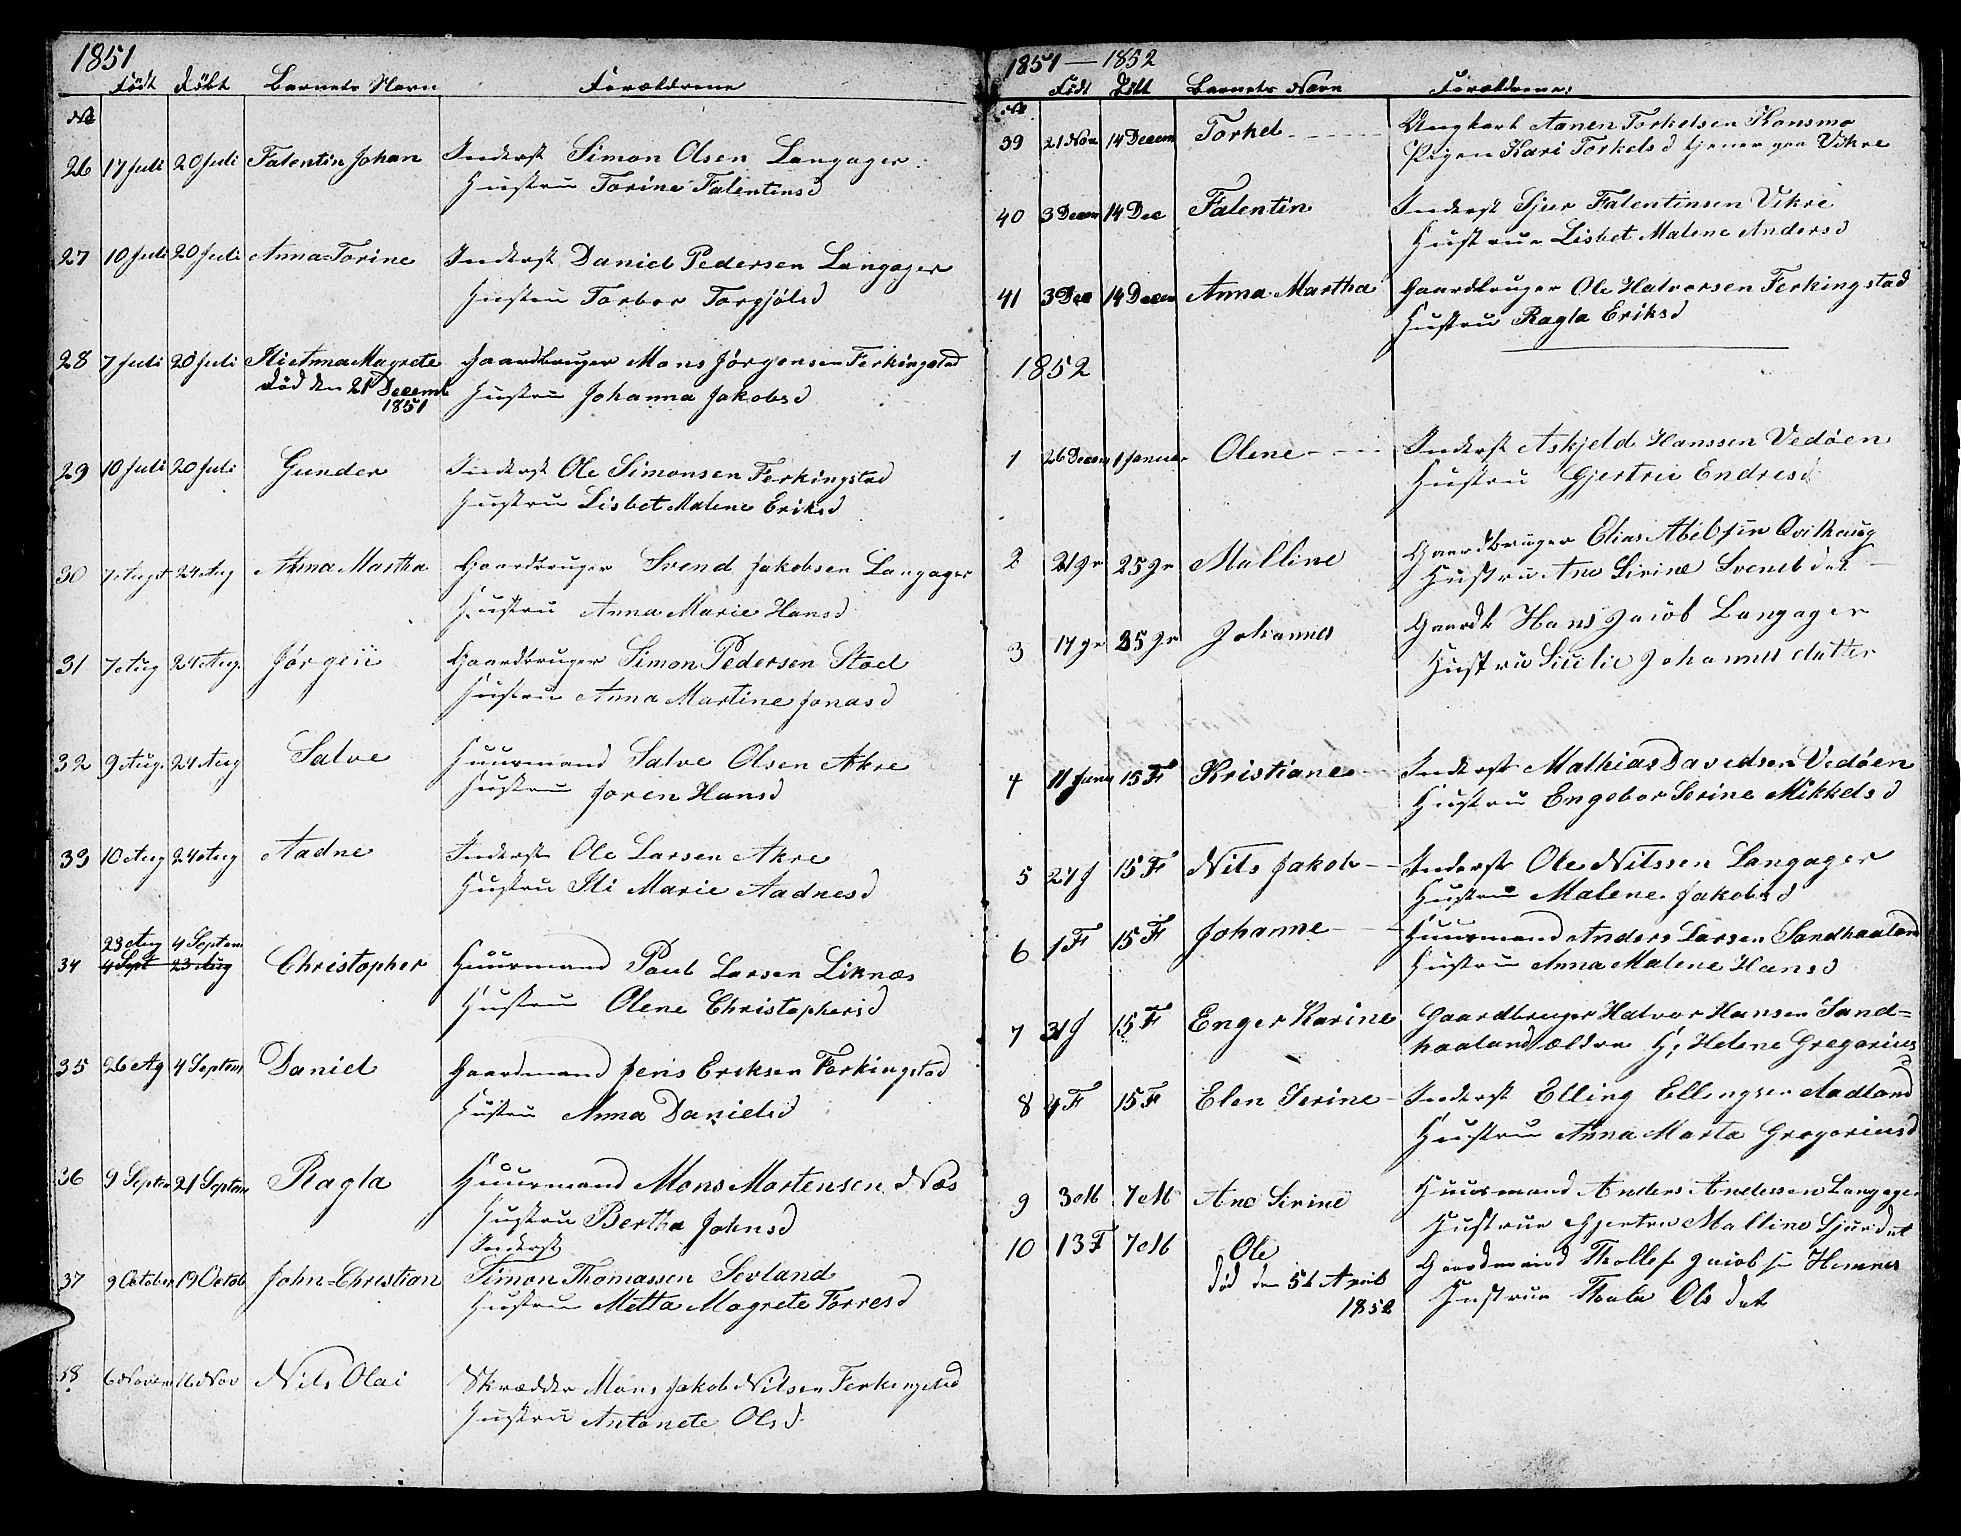 1851
Født Døbt Barnets Navn Forældrene
No
26 17 Juli 20 Juli Falentin Johan Inderst Simon Olsen Langager
Hustru Torine Falentinsd
27 10 Juli 20 Juli Anna=Torine Inderst Daniel Pedersen Langager
Hustru Torbor Torgjølsd
28 7 Juli 20 Juli Ili Anna Magrete Gaardbruger Mons Jørgensen Ferkingstad
død den 21 Decemb Hustru Johanna Jakobsd
1851
29 10 Juli 20 Juli Gunder Inderst Ole Simonsen Ferkingstad
Hustru Lisbet Malene Eriksd
30 7 August 24 Aug Anna Martha Gaardbruger Svend Jakobsen Langager
Hustru Anna Marie Hansd
31 7 Aug 24 Aug. Jørgen Gaardbruger Simon Pedersen Stad
Hustru Anna Martine Jonasd
32 9 Aug. 24 Aug Salve Huusmand Salve Olsen Akre
Hustru Joren Hansd
33 10 Aug 24 Aug Aadne Inderst Ole Larsen Akre
Hustru Ili Marie Aadnesd
23 Aug 4 Septem
34 4 Sept 23 Aug Christopher Huusmand Paul Larsen Liknæs
Hustru Olene Christophersd
35 26 Ag 4 Septem Daniel Gaardmand Jens Eriksen Ferkingstad
Hustru Anna Danielsd
36 9 Septem 21 Septem Ragla Huusmand Mons Mortensen Næs
Hustru Bertha Johnsd
Inderst
37 9 October 19 Octob John=Christian Simon Thomassen Sevland
Hustru Metta Magrete Torresd
38 6 Novem 16 Nov Nils Olai Skrædder Mons Jakob Nilsen Ferkingstad
Hustru Antonete Olsd
1851 — 1852
Født Døbt Barnets Navn Forældrene:
No
39 21 Nov 14 Decem Torkel Ungkarl Aanen Torkelsen Konsmo
Pigen Kari Torkelsd tjener paa Vikre
40 3 Decem 14 Dec Falentin Inderst Sjur Falentinsen Vikre
Hustrue Lisbet Malene Andersd
41 3 Dec 14 Decem Anna Martha Gaardbruger Ole Halvorsen Ferkingstad
Hustru Ragla Eriksd
1852
1 26 Decem 1 Januar Olene Inderst Askjeld Hanssen Vedøen
Hustru Gjertrue Endresd
2 21 Jr 25 Jr Malline Gaardbruger Elias Abelsen Qvilhaug
Hustru Ane Sirine Svensdat
3 17 Jr 25 Jr Johannes Gaardb Hans Jacob Langager
Hustru Sicilie Johannesdatter
4 11 Janu 15 F Kristiane Inderst Mathias Davidsen Vedøen
Hustru Engebor Serine Mikkelsd
5 27 J 15 F Nils Jakob Inderst Ole Nilssen Langager
Hustru Malene Jakobsd
6 1 F 15 F Johanne Huusmand Anders Larsen Sandhaaland
Hustru Anna Malene Hansd
7 31 J 15 F Enger Karine Gaardbruger Halvor Hansen Sand=
haaland ældre H; Helene Gregorius
d
8 4 F 15 F Elen Serine Inderst Elling Ellingsen Aadland
Hustru Anna Marta Gregoriusd
9 3 M 7 M Ane Sirine Huusmand Anders Andersen Langager
Hustrue Gjertru Malline Sjursdat
10 13 F 7 M Ole Gaardmand Thollef Jacobsen Hemnes
død den 5t April Hustrue Thala Olsdat
1852